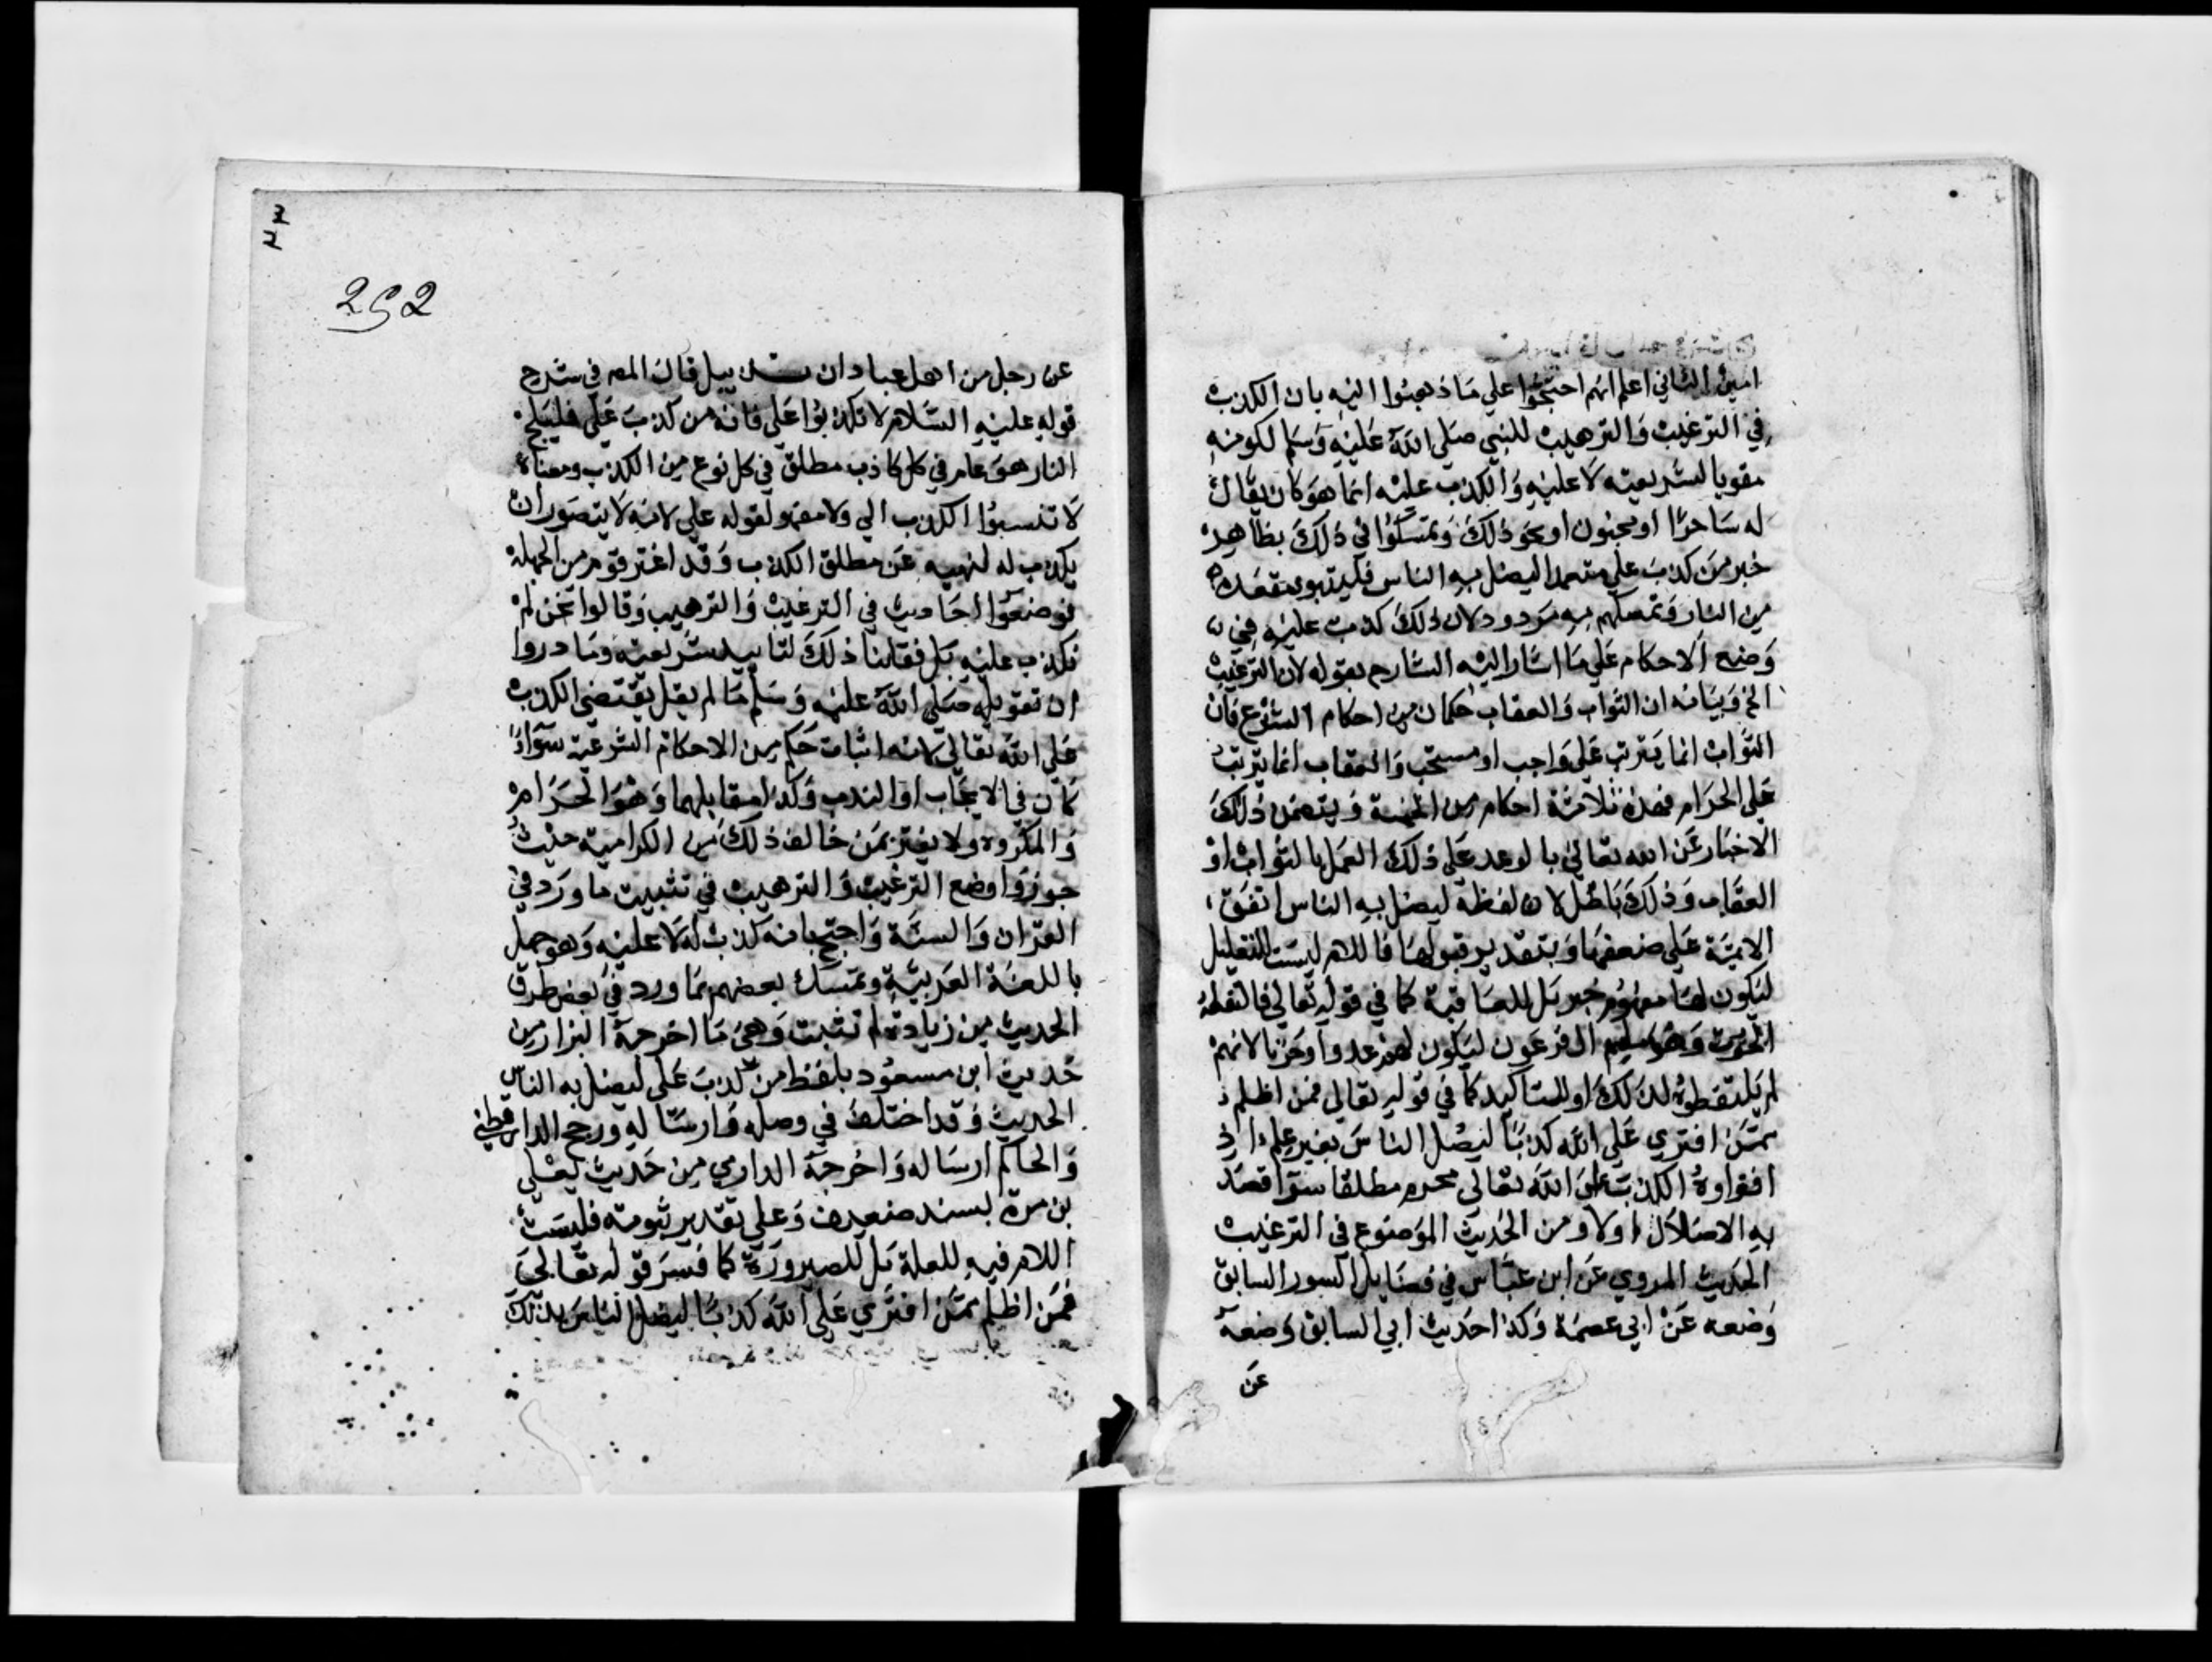 امين الثاني اعلم انهم احتجوا علي ما ذهبوا اليه بان الكذب
في الترغيب والترهيب للنبي صلي الله عليه وسلم لكونه
مقويا لشريعته لا عليه والكذب عليه انما هو كان يقال
له ساحرا او مجنون او نحو ذلك وتمسكوا في ذلك بظاهر
خبر من كذب علي متعمدا ليضل به الناس فليتبوء مقعده
من النار وتمسكهم به مردود لان ذلك كذب عليه في
وضع الاحكام علي ما اشار اليه الشارح بقوله لان الترغيب
الخ وبيانه ان الثواب والعقاب حكمان من احكام الشرع فان
الثواب انما يترتب علي واجب او مستحب والعقاب انما يترتب
علي الحرام فهذه ثلاثة احكام من الخمسة ويتضمن ذلك
الاخبار عن الله تعالي بالوعد علي ذلك العمل بالثواب او
العقاب وذلك باطل لان لفظة ليضل به الناس اتفق
الايمة علي ضعفها وبتقدير قبولها فاللام ليست للتعليل
ليكون لها مفهوم خبر بل للعاقبة كما في قوله تعالي فالتقطه
ال فرعون ليكون لهم عدوا وحزنا لانهم
لم يلتقطوه لذلك او للتاكيد كما في قوله تعالي فمن اظلم
ممن افتري علي الله كذبا ليضل الناس بغير علم اذ
افتراوه الكذب علي الله تعالي محرم مطلقا سوا قصد
به الاضلال اولا ومن الحديث الموضوع في الترغيب
الحديث المروي عن ابن عباس في فضايل السور السابق
وضعه عن ابي عصمة وكذا حديث ابي السابق وضعه
عن
٣٣
252
عن رجل من اهل عبادان قال المص في شرح
قوله عليه السلام لا تكذبوا علي فانه من كذب علي فليلج
النار هو عام في كل كاذب مطلق في كل نوع من الكذب ومعناه
لا تنسبوا الكذب الي ولا مفهوم لقوله علي لانه لا يتصور ان
يكذب له لنهيه عن مطلق الكذب وقد اغتر قوم من الجهلة
فوضعوا احاديث في الترغيب والترهيب وقالوا نحن لم
نكذب عليه بل فعلنا ذلك لتاييد شريعته وما دروا
ان تقويله صلي الله عليه وسلم ما لم يقل يقتضي الكذب
علي الله تعالي لانه اثبات حكم من الاحكام الشرعية سوآء
كان في الايجاب او الندب وكذا مقابلهما وهو الحرام
والمكروه ولا يغتر بمن خالف ذلك من الكرامية حيث
جوزوا وضع الترغيب والترهيب في تثبيت ما ورد في
القران والسنة واحتج بانه كذب له لا عليه وهو جهل
باللغة العربية وتمسك بعضهم بما ورد في بعض طرق
الحديث من زيادة لم تثبت وهي ما اخرجه البزار من
حديث ابن مسعود بلفظ من كذب علي ليضل به الناس
الحديث وقد اختلف في وصله وارساله ورجح الدارقطني
والحاكم ارساله واخرجه الدارمي من حديث يعلي
بن مرة بسند ضعيف وعلي تقدير ثبوته فليست
اللام فيه للعلة بل للصيرورة كما فسر قوله تعالي
فمن اظلم ممن افتري علي الله كذبا ليضل الناس بذلك